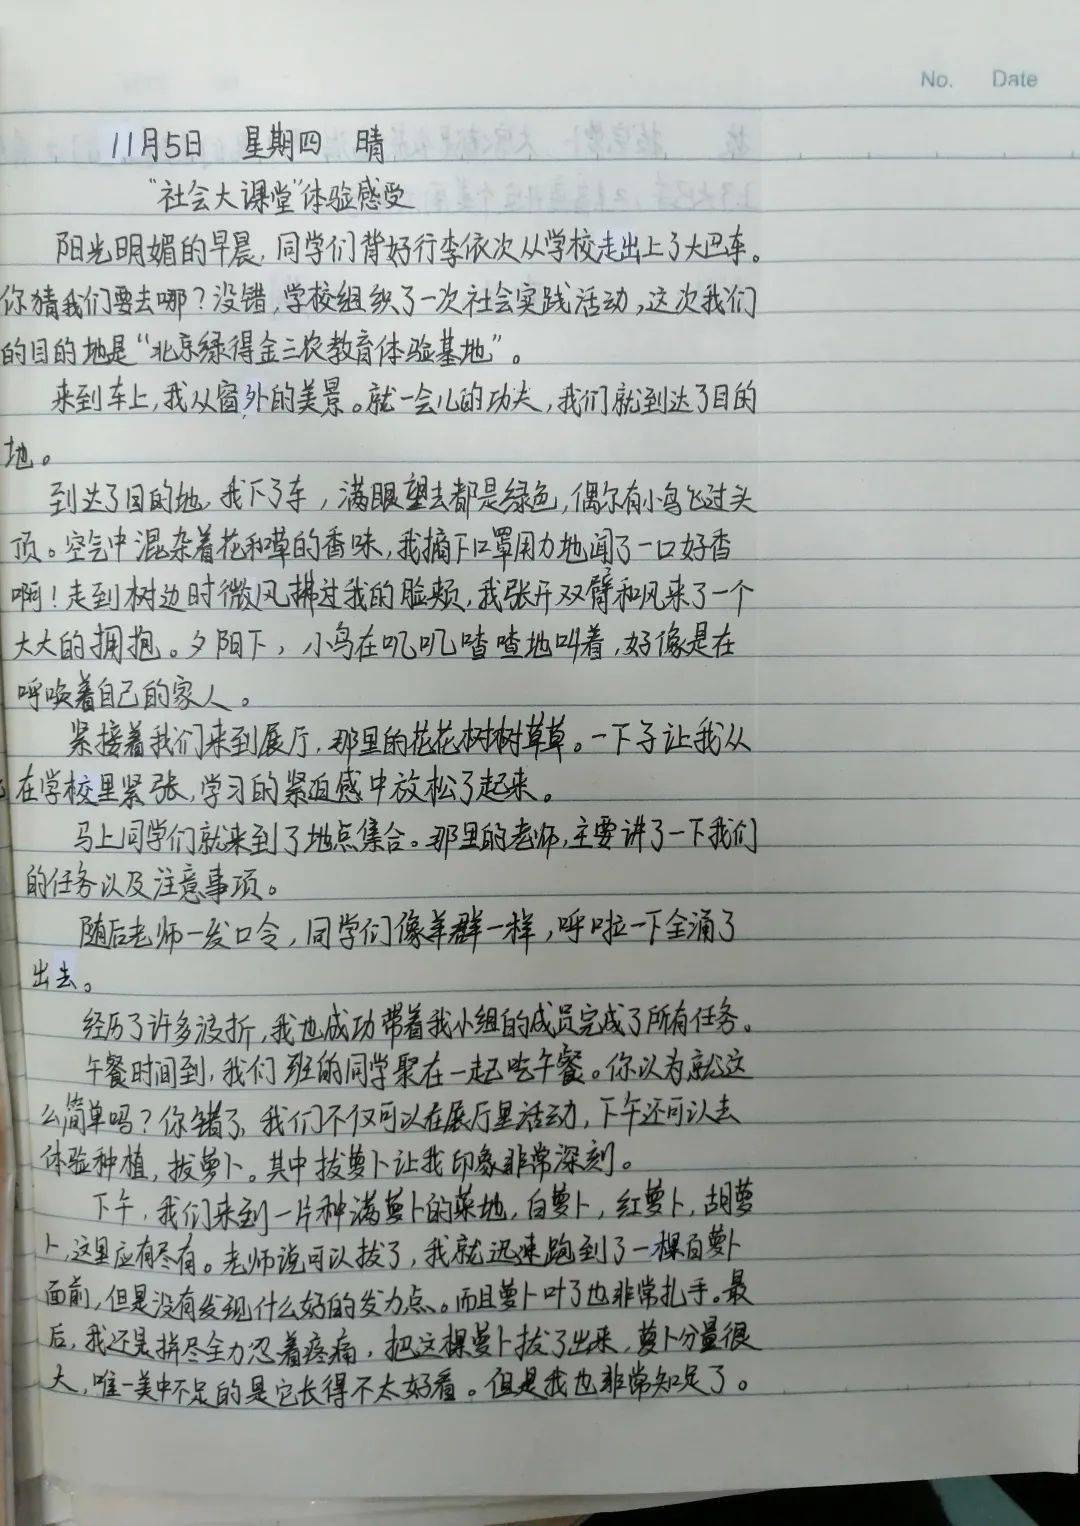 No. Date
11月5日 星期四 晴
“社会大课堂”体验感受
阳光明媚的早晨,同学们背好行李依次从学校走出上了大巴车。
你猜我们要去哪？没错,学校组织了一次社会实践活动,这次我们
的目的地是“北京绿得金三农教育体验基地”。
来到车上,我从窗外的美景。就一会儿的功夫,我们就到达了目的
地。
到达了目的地,我下了车,满眼望去都是绿色,偶尔有小鸟飞过头
顶。空气中混杂着花和草的香味,我摘下口罩用力地闻了一口好香
啊！走到树边时微风拂过我的脸颊,我张开双臂和风来了一个
大大的拥抱。夕阳下,小鸟在叽叽喳喳地叫着,好像是在
呼唤着自己的家人。
紧接着我们来到展厅,那里的花花树树草草。一下子让我从
在学校里紧张,学习的紧迫感中放松了起来。
马上同学们就来到了地点集合。那里的老师,主要讲了一下我们
的任务以及注意事项。
随后老师一发口令,同学们像羊群一样,呼啦一下全涌了
出去。
经历了许多波折,我也成功带着我小组的成员完成了所有任务。
午餐时间到,我们班的同学聚在一起吃午餐。你以为就这
么简单吗？你错了,我们不仅可以在展厅里活动,下午还可以去
体验种植,拔萝卜。其中拔萝卜让我印象非常深刻。
下午,我们来到一片种满萝卜的菜地,白萝卜,红萝卜,胡萝
卜,这里应有尽有。老师说可以拔了,我就迅速跑到了一棵白萝卜
面前,但是没有发现什么好的发力点。而且萝卜叶子也非常扎手。最
后,我还是拼尽全力忍着疼痛,把这棵萝卜拔了出来,萝卜分量很
大,唯一美中不足的是它长得不太好看。但是我也非常知足了。